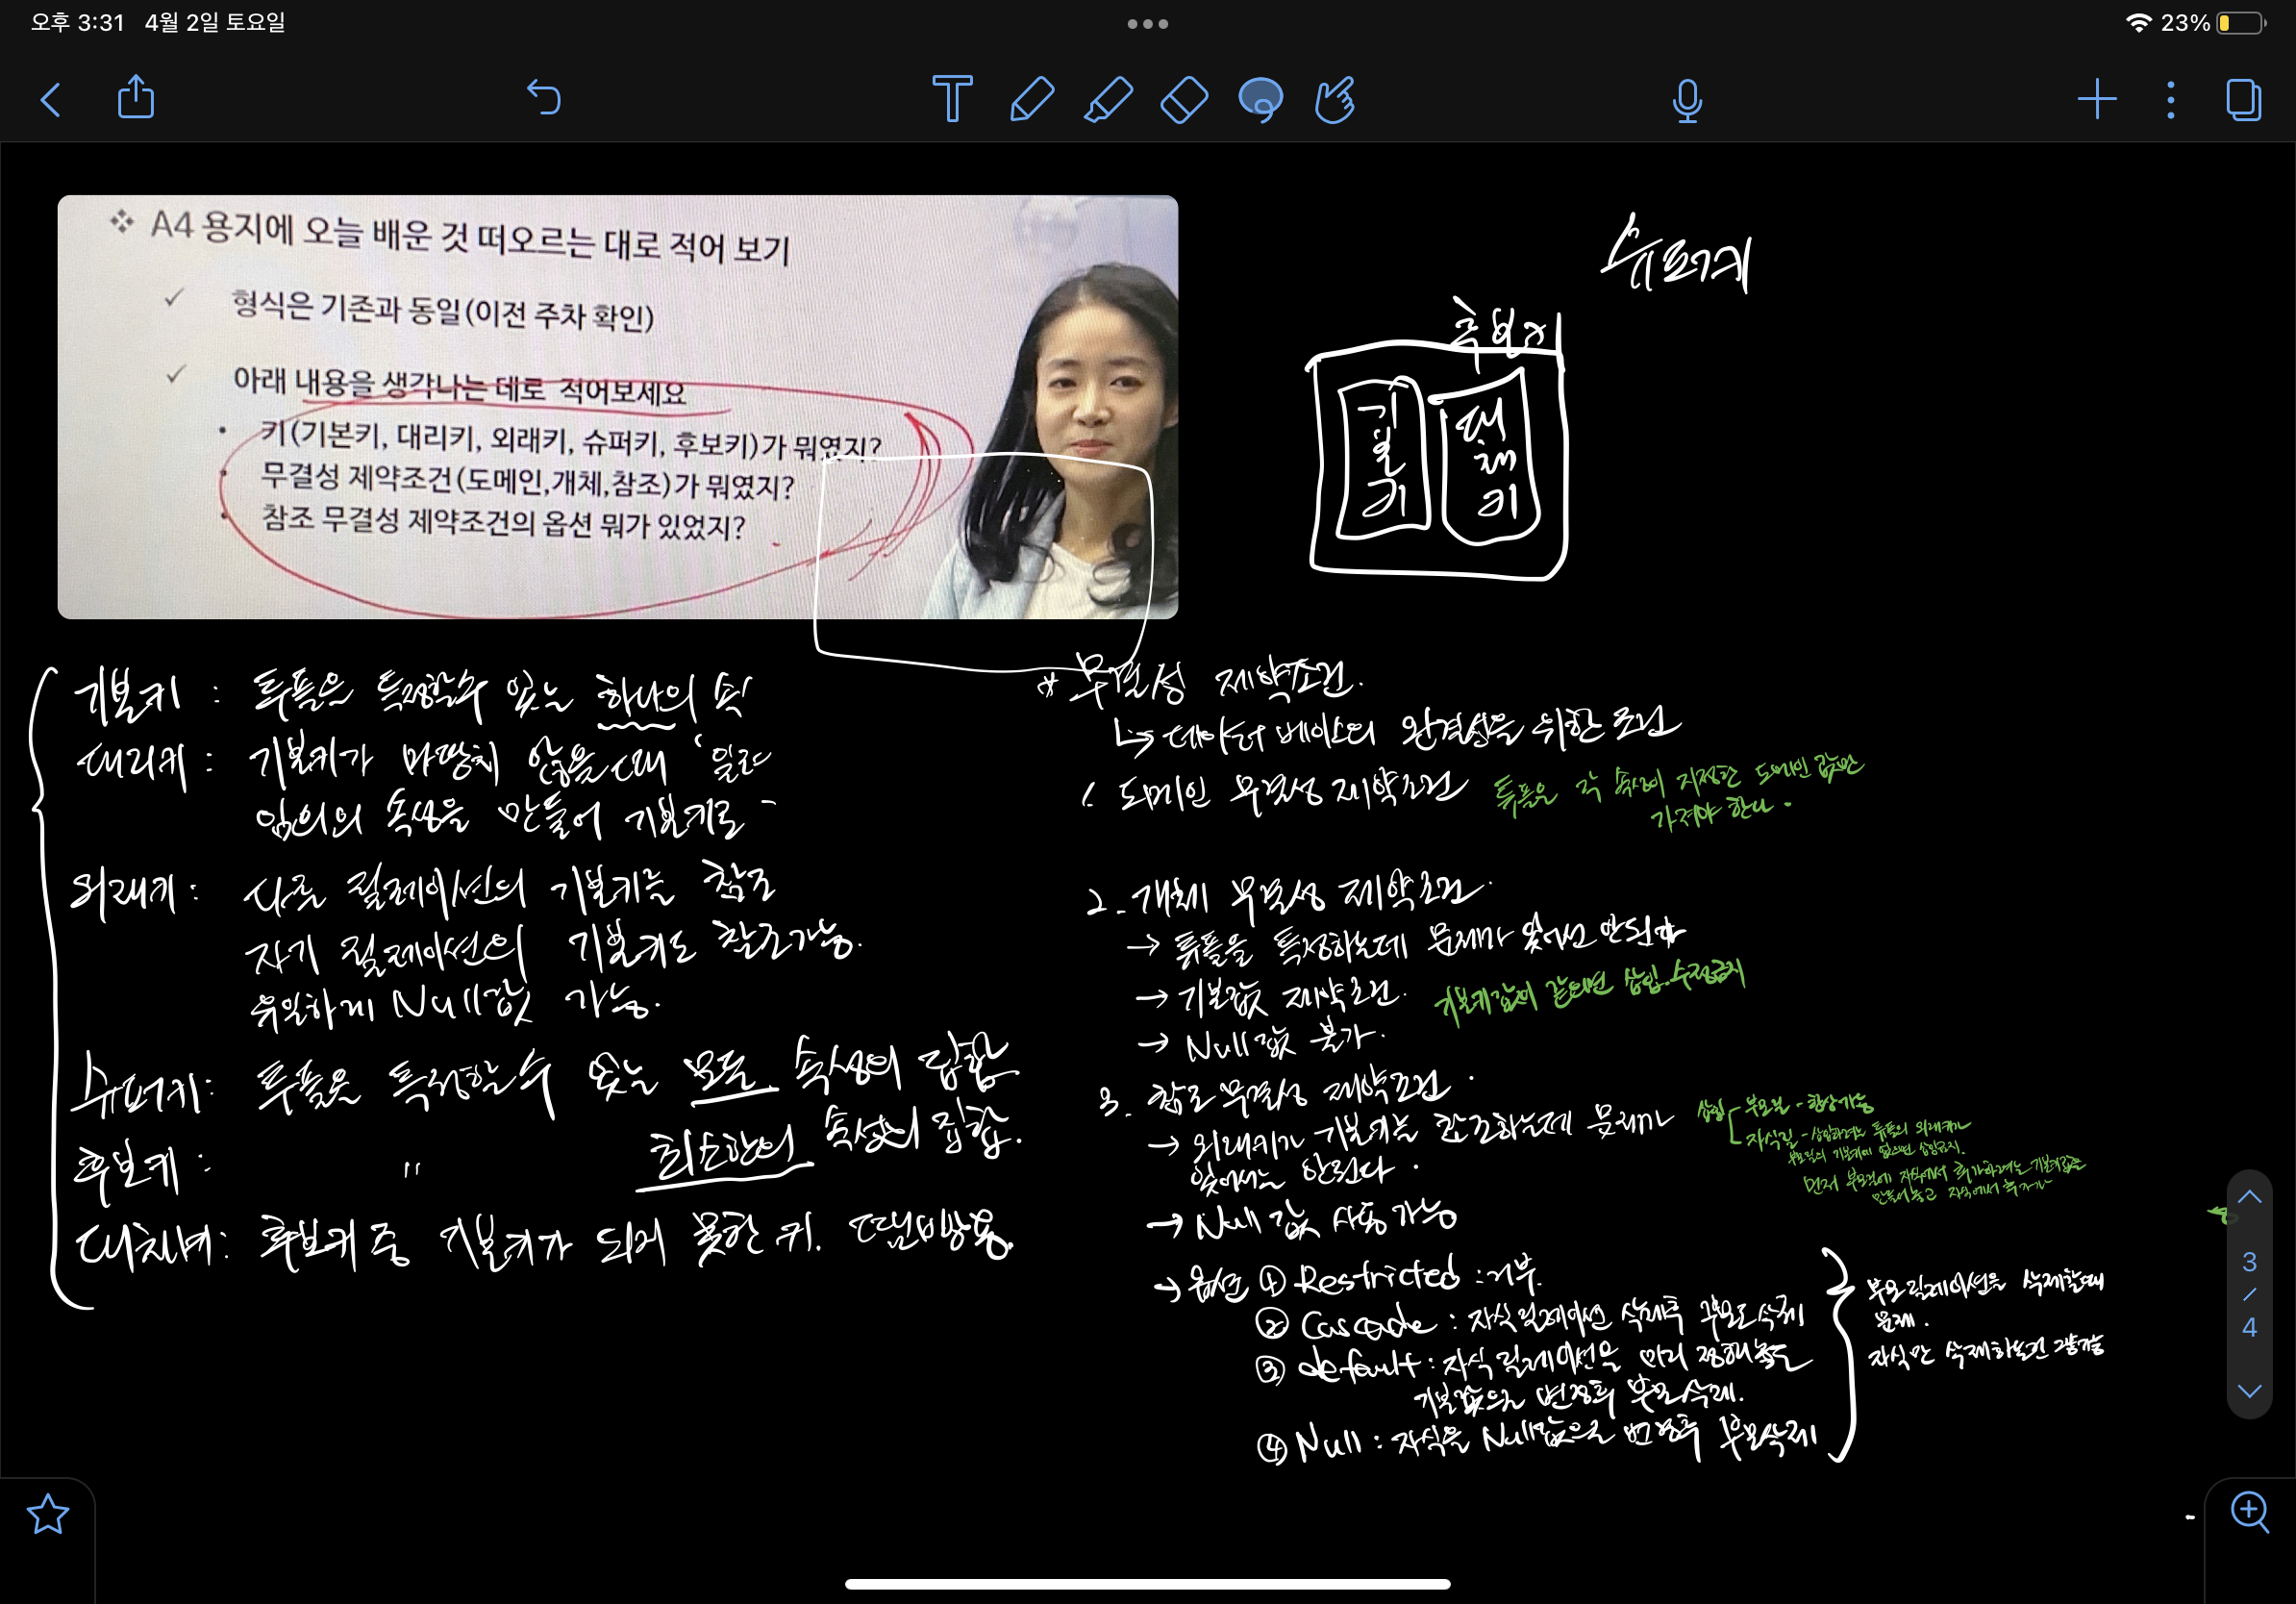 오후 3:31 4월 2일 토요일
23%
❖ A4 용지에 오늘 배운 것 떠오르는 대로 적어 보기
✓ 형식은 기존과 동일(이전 주차 확인)
✓ 아래 내용을 생각나는 데로 적어보세요
• 키(기본키, 대리키, 외래키, 슈퍼키, 후보키)가 뭐였지?
• 무결성 제약조건(도메인,개체,참조)가 뭐였지?
• 참조 무결성 제약조건의 옵션 뭐가 있었지?
후보키
기본키
대체키
기본키 : 투플을 특정할수 있는 하나의 속
대리키 : 기본키가 마땅치 않을때 일려
임의의 속성을 만들어 기본키로
외래키 : 다른 릴레이션의 기본키를 참조
자기 릴레이션의 기본키도 참조가능.
유일하게 Null값 가능.
슈퍼키 : 투플을 특정할수 있는 모든 속성의 집합
후보키 : " 최소한의 속성의 집합.
대체키 : 후보키 중 기본키가 되지 못한 키.
* 무결성 제약조건.
↳ 데이터 베이스의 완결성을 위한 조건
1. 도메인 무결성 제약조건 투플은 각 속성이 지정한 도메인 값만
가져야 한다.
2. 개체 무결성 제약조건.
→ 튜플을 특정하는데 문제가 있어선 안된다
→ 기본값 제약조건. 기본키값이 같으면 삽입.수정금지
→ Null값 불가.
3. 참조 무결성 제약조건.
→ 외래키가 기본키를 참조하는데 문제가
있어서는 안된다.
삽입 부모릴 - 항상가능
자식릴 - 삽입하려는 투플의 외래키가
부모릴의 기본키에 없으면 삽입금지.
먼저 부모릴에 자식에서 추가하려는 기본키값을
만들어 놓고 자식에서 추가
→ Null 값 사용 가능
→ 옵션 ① Restricted : 거부.
② Cascade : 자식릴레이션 삭제후 부모도삭제
③ default : 자식 릴레이션을 미리 정해놓은
기본값으로 변경후 부모삭제.
④ Null : 자식을 Null값으로 변경후 부모삭제
부모릴레이션을 삭제할때
문제.
자식만 삭제하는건 괜찮음
3
/
4